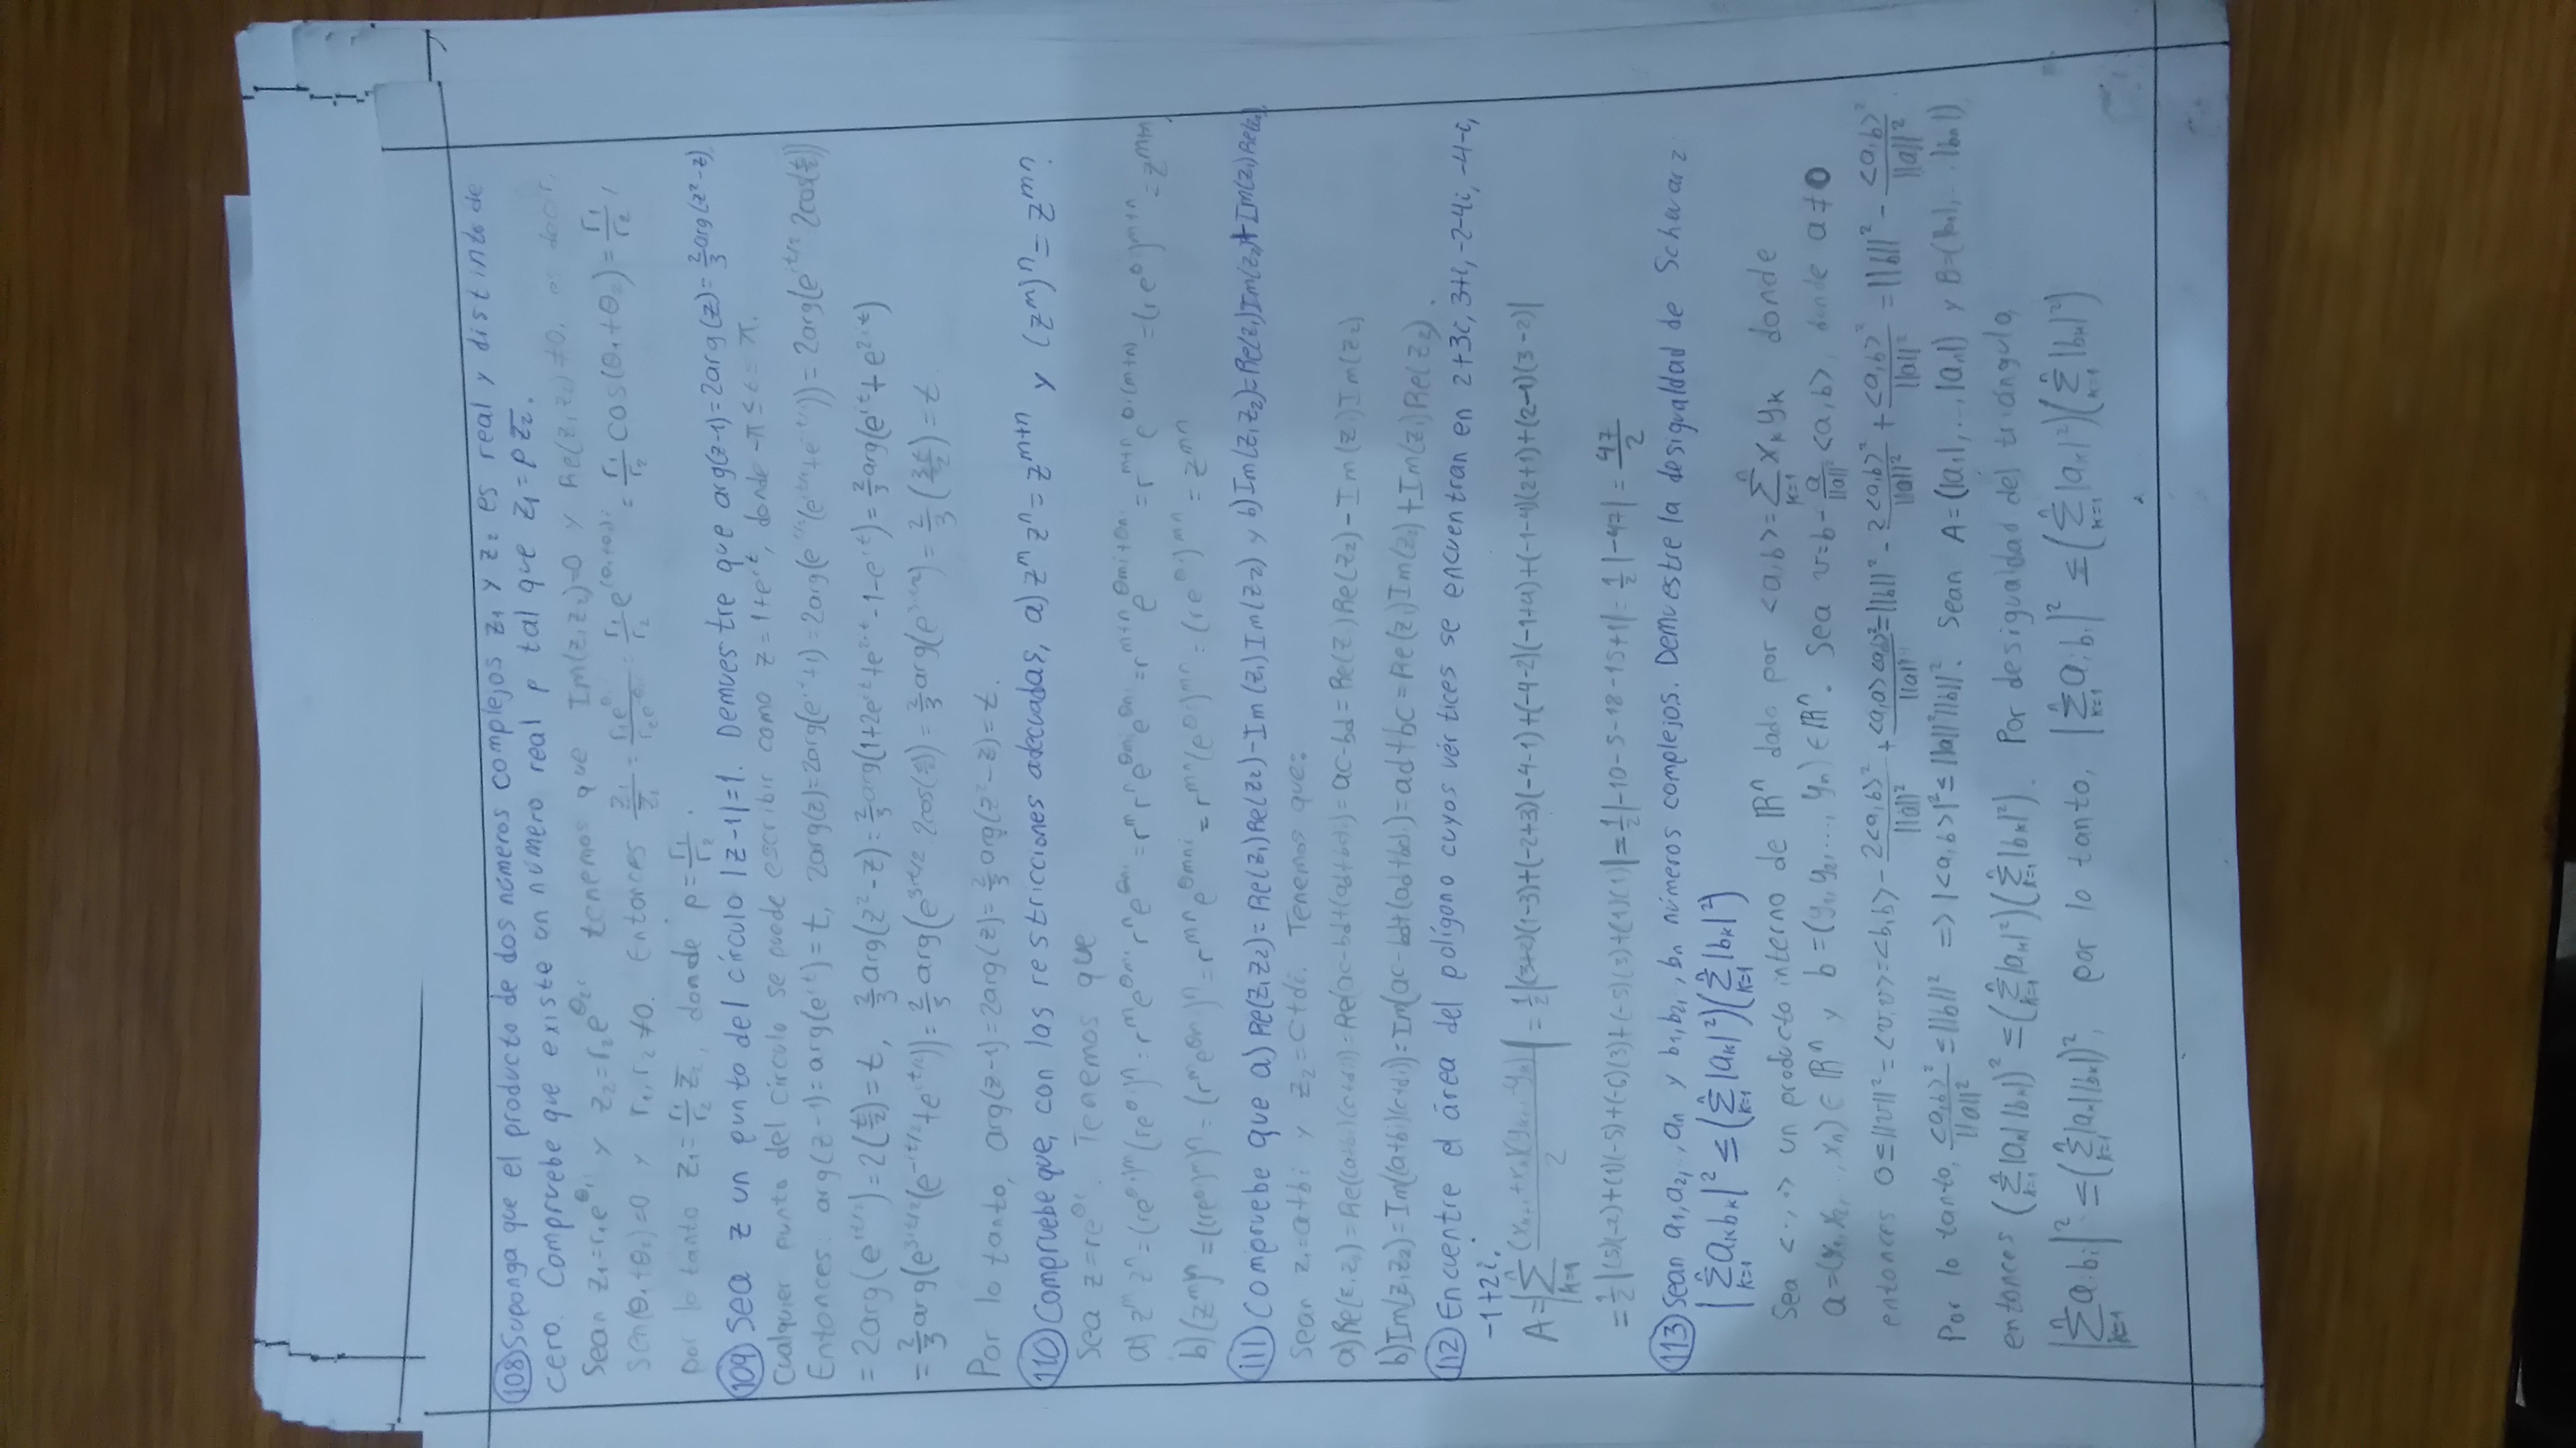 108 Suponga que el producto de dos números complejos z₁ y z₂ es real y distinto de
cero. Compruebe que existe un número real p tal que z₁=p z̄₂.
Sean z₁=r₁e^θ₁i y z₂=r₂e^θ₂i tenemos que Im(z₁z₂)=0 y Re(z₁z₂)≠0, es decir,
sen(θ₁+θ₂)=0 y r₁,r₂≠0. Entonces = r₁/r₂ e^(θ₁+θ₂)i = r₁/r₂ cos(θ₁+θ₂)= r₁/r₂,
por lo tanto z₁= r₁/r₂ z̄₂, donde p= r₁/r₂.
109 Sea z un punto del círculo |z-1|=1. Demuestre que arg(z-1)=2arg(z)=2/3 arg(z²-z).
Cualquier punto del círculo se puede escribir como z=1+e^it, donde -π≤t≤π.
Entonces: arg(z-1)=arg(e^it)=t, 2arg(z)=2arg(e^it+1)=2arg(e^it/2(e^it/2+e^-it/2))=2arg(e^it/2 2cos(t/2))
=2arg(e^it/2)=2(t/2)=t, 2/3 arg(z²-z)=2/3 arg(1+2e^it+e^2it-1-e^it)=2/3 arg(e^it+e^2it)
=2/3 arg(e^3it/2(e^-it/2+e^it/2))=2/3 arg(e^3it/2 2cos(t/2))=2/3 arg(e^3it/2)=2/3(3t/2)=t.
Por lo tanto, arg(z-1)=2arg(z)=2/3 arg(z²-z)=t.
110 Compruebe que, con las restricciones adecuadas, a) z^m z^n=z^(m+n) y (z^m)^n=z^mn.
Sea z=re^θi. Tenemos que
a) z^m z^n=(re^θi)^m(re^θi)^n=r^m e^θmi r^n e^θni=r^m r^n e^θmi e^θni=r^(m+n) e^(θmi+θni)=r^(m+n) e^θi(m+n)=(re^θi)^(m+n)=z^(m+n)
b) (z^m)^n=((re^θi)^m)^n=(r^m e^θmi)^n=r^mn e^θmni=r^mn(e^θi)^mn=(re^θi)^mn=z^mn
111 Compruebe que a) Re(z₁z₂)=Re(z₁)Re(z₂)-Im(z₁)Im(z₂) y b) Im(z₁z₂)=Re(z₁)Im(z₂)+Im(z₁)Re(z₂).
Sean z₁=a+bi y z₂=c+di. Tenemos que:
a) Re(z₁z₂)=Re((a+bi)(c+di))=Re(ac-bd+(ad+bc)i)=ac-bd=Re(z₁)Re(z₂)-Im(z₁)Im(z₂)
b) Im(z₁z₂)=Im((a+bi)(c+di))=Im(ac-bd+(ad+bc)i)=ad+bc=Re(z₁)Im(z₂)+Im(z₁)Re(z₂).
112 Encuentre el área del polígono cuyos vértices se encuentran en 2+3i, 3+i, -2-4i, -4-i,
-1+2i.
A=|Σ_{k=1}^n (x_{k+1}+x_k)(y_{k+1}-y_k)/2| = 1/2|(3+2)(1-3)+(-2+3)(-4-1)+(-4-2)(-1+4)+(-1-4)(2+1)+(2-1)(3-2)|
=1/2|(5)(-2)+(1)(-5)+(-6)(3)+(-5)(3)+(1)(1)|=1/2|-10-5-18-15+1|=1/2|-47|=47/2
113 Sean a₁,a₂,.,aₙ y b₁,b₂,.,bₙ números complejos. Demuestre la desigualdad de Schwarz
|Σ_{k=1}^n a_k b_k|² ≤ (Σ_{k=1}^n |a_k|²)(Σ_{k=1}^n |b_k|²)
Sea <·,·> un producto interno de ℝⁿ dado por <a,b>=Σ_{k=1}^n x_k y_k donde
a=(x₁,x₂,...,xₙ)∈ℝⁿ y b=(y₁,y₂,...,yₙ)∈ℝⁿ. Sea v=b- a/||a||² <a,b>, donde a≠0
entonces 0≤||v||²=<v,v>=<b,b>- 2<a,b>²/||a||² + <a,a><a,b>²/||a||⁴=||b||²- 2<a,b>²/||a||² + <a,b>²/||a||² =||b||²- <a,b>²/||a||².
Por lo tanto, <a,b>²/||a||² ≤||b||² => |<a,b>|²≤||a||²||b||². Sean A=(|a₁|,...,|aₙ|) y B=(|b₁|,...,|bₙ|),
entonces (Σ_{k=1}^n |a_k||b_k|)² ≤(Σ_{k=1}^n |a_k|²)(Σ_{k=1}^n |b_k|²). Por desigualdad del triángulo,
|Σ_{k=1}^n a_i b_i|² ≤(Σ_{k=1}^n |a_k||b_k|)², por lo tanto, |Σ_{k=1}^n a_i b_i|² ≤(Σ_{k=1}^n |a_k|²)(Σ_{k=1}^n |b_k|²)